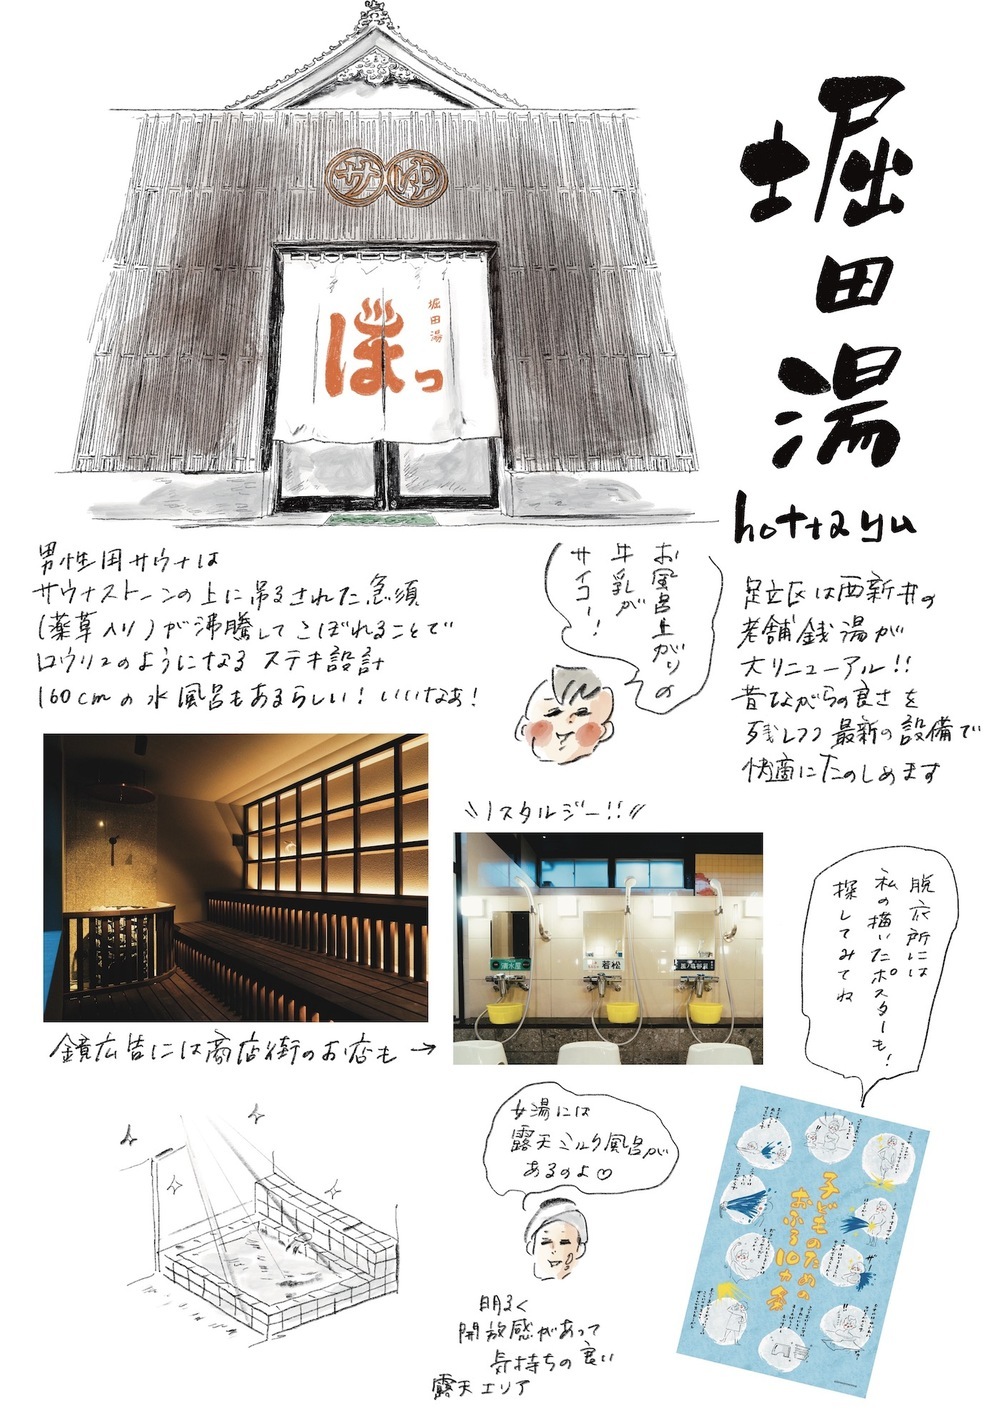 堀田湯
hottayu
サゆ
堀田湯
ほっ
男性用サウナは
サウナストーンの上に吊るされた急須
(薬草入り)が沸騰してこぼれることで
ロウリュのようになるステキ設計
160cmの水風呂もあるらしい!いいなぁ!
お風呂上がりの
牛乳が
サイコー!
足立区は西新井の
老舗銭湯が
大リニューアル!!
昔ながらの良さを
残しつつ最新の設備で
快適にたのしめます
ノスタルジー!!
清水屋
若松
鏡広告には商店街のお店も→
脱衣所には
私の描いたポスターも!
探してみてね
女湯には
露天ミルク風呂が
あるのよ♡
明るく
開放感があって
気持ちの良い
露天エリア
子どものための
おふろ10カ条